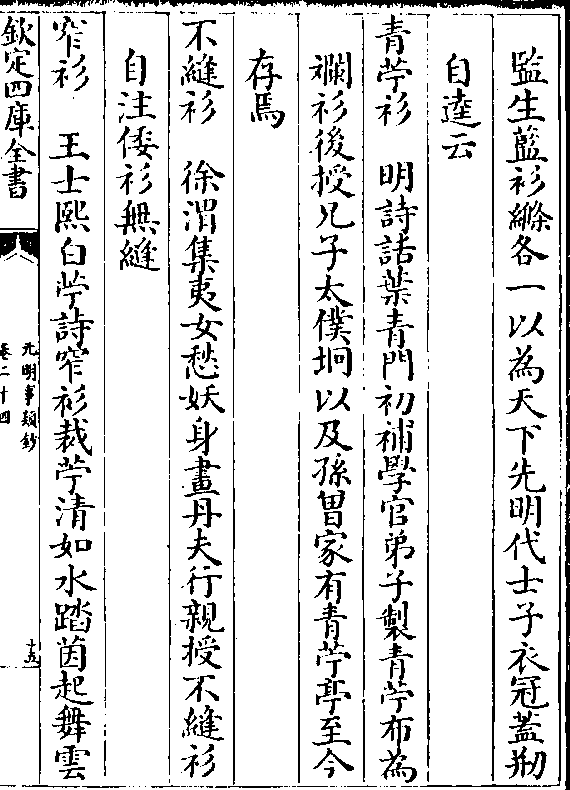 監生藍衫縧各一以為天下先明代士子衣冠蓋剏
自逹云
青苧衫　明詩話葉青門初補學官弟子製青苧布為
斕衫後授兒子太僕坰以及孫曽家有青苧亭至今
存焉
不縫衫　徐渭集夷女愁妖身畫丹夫行親授不縫衫
自注倭衫無縫
窄衫　王士熙白苧詩窄衫裁苧清如水踏茵起舞雲
欽定四庫全書
元明事類鈔
卷二十四
十五